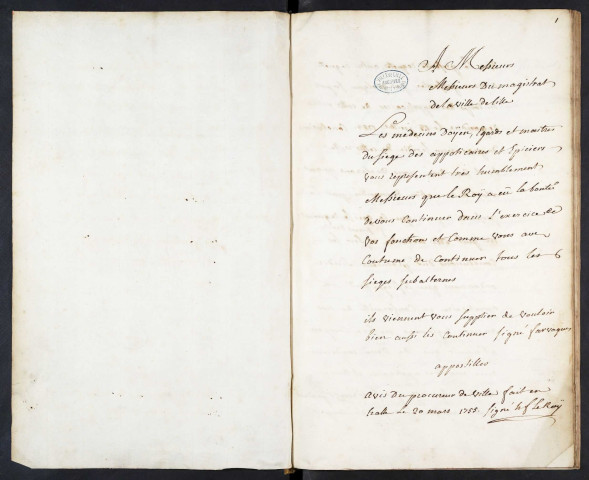 1
A Messieurs
Messieurs Du magistrat
de la ville de lille
Les medecins Doÿen, Egards et maitres
du siege des appoticaires et Epiciers
vous representent tres humblement
Messieurs que le Roÿ a eu la bonté
de vous Continuer dans L'exercice de
vos fonction et Comme vous avez
Coutume de Continuer tous les
sieges subalternes
ils viennent vous supplier de vouloir
bien aussi les Continuer signé farvaques
appostilles
avis du procureur de ville fait en
halle le 20 mars 1755. signé le Roÿ